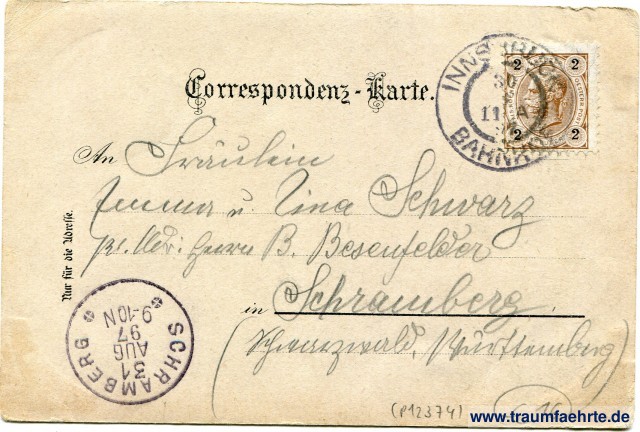 Correspondenz-Karte.
INNSBRUCK
30
11
BAHNHOF
2 2
2 2
An Fräulein
Emma u. Tina Schwarz
Adr. Herrn B. Besenfelder
Nur für die Adresse.
in Schramberg
(Schwarzwald, Württemberg)
SCHRAMBERG
31
AUG
97
9-10N
(P12374)
www.traumfaehrte.de